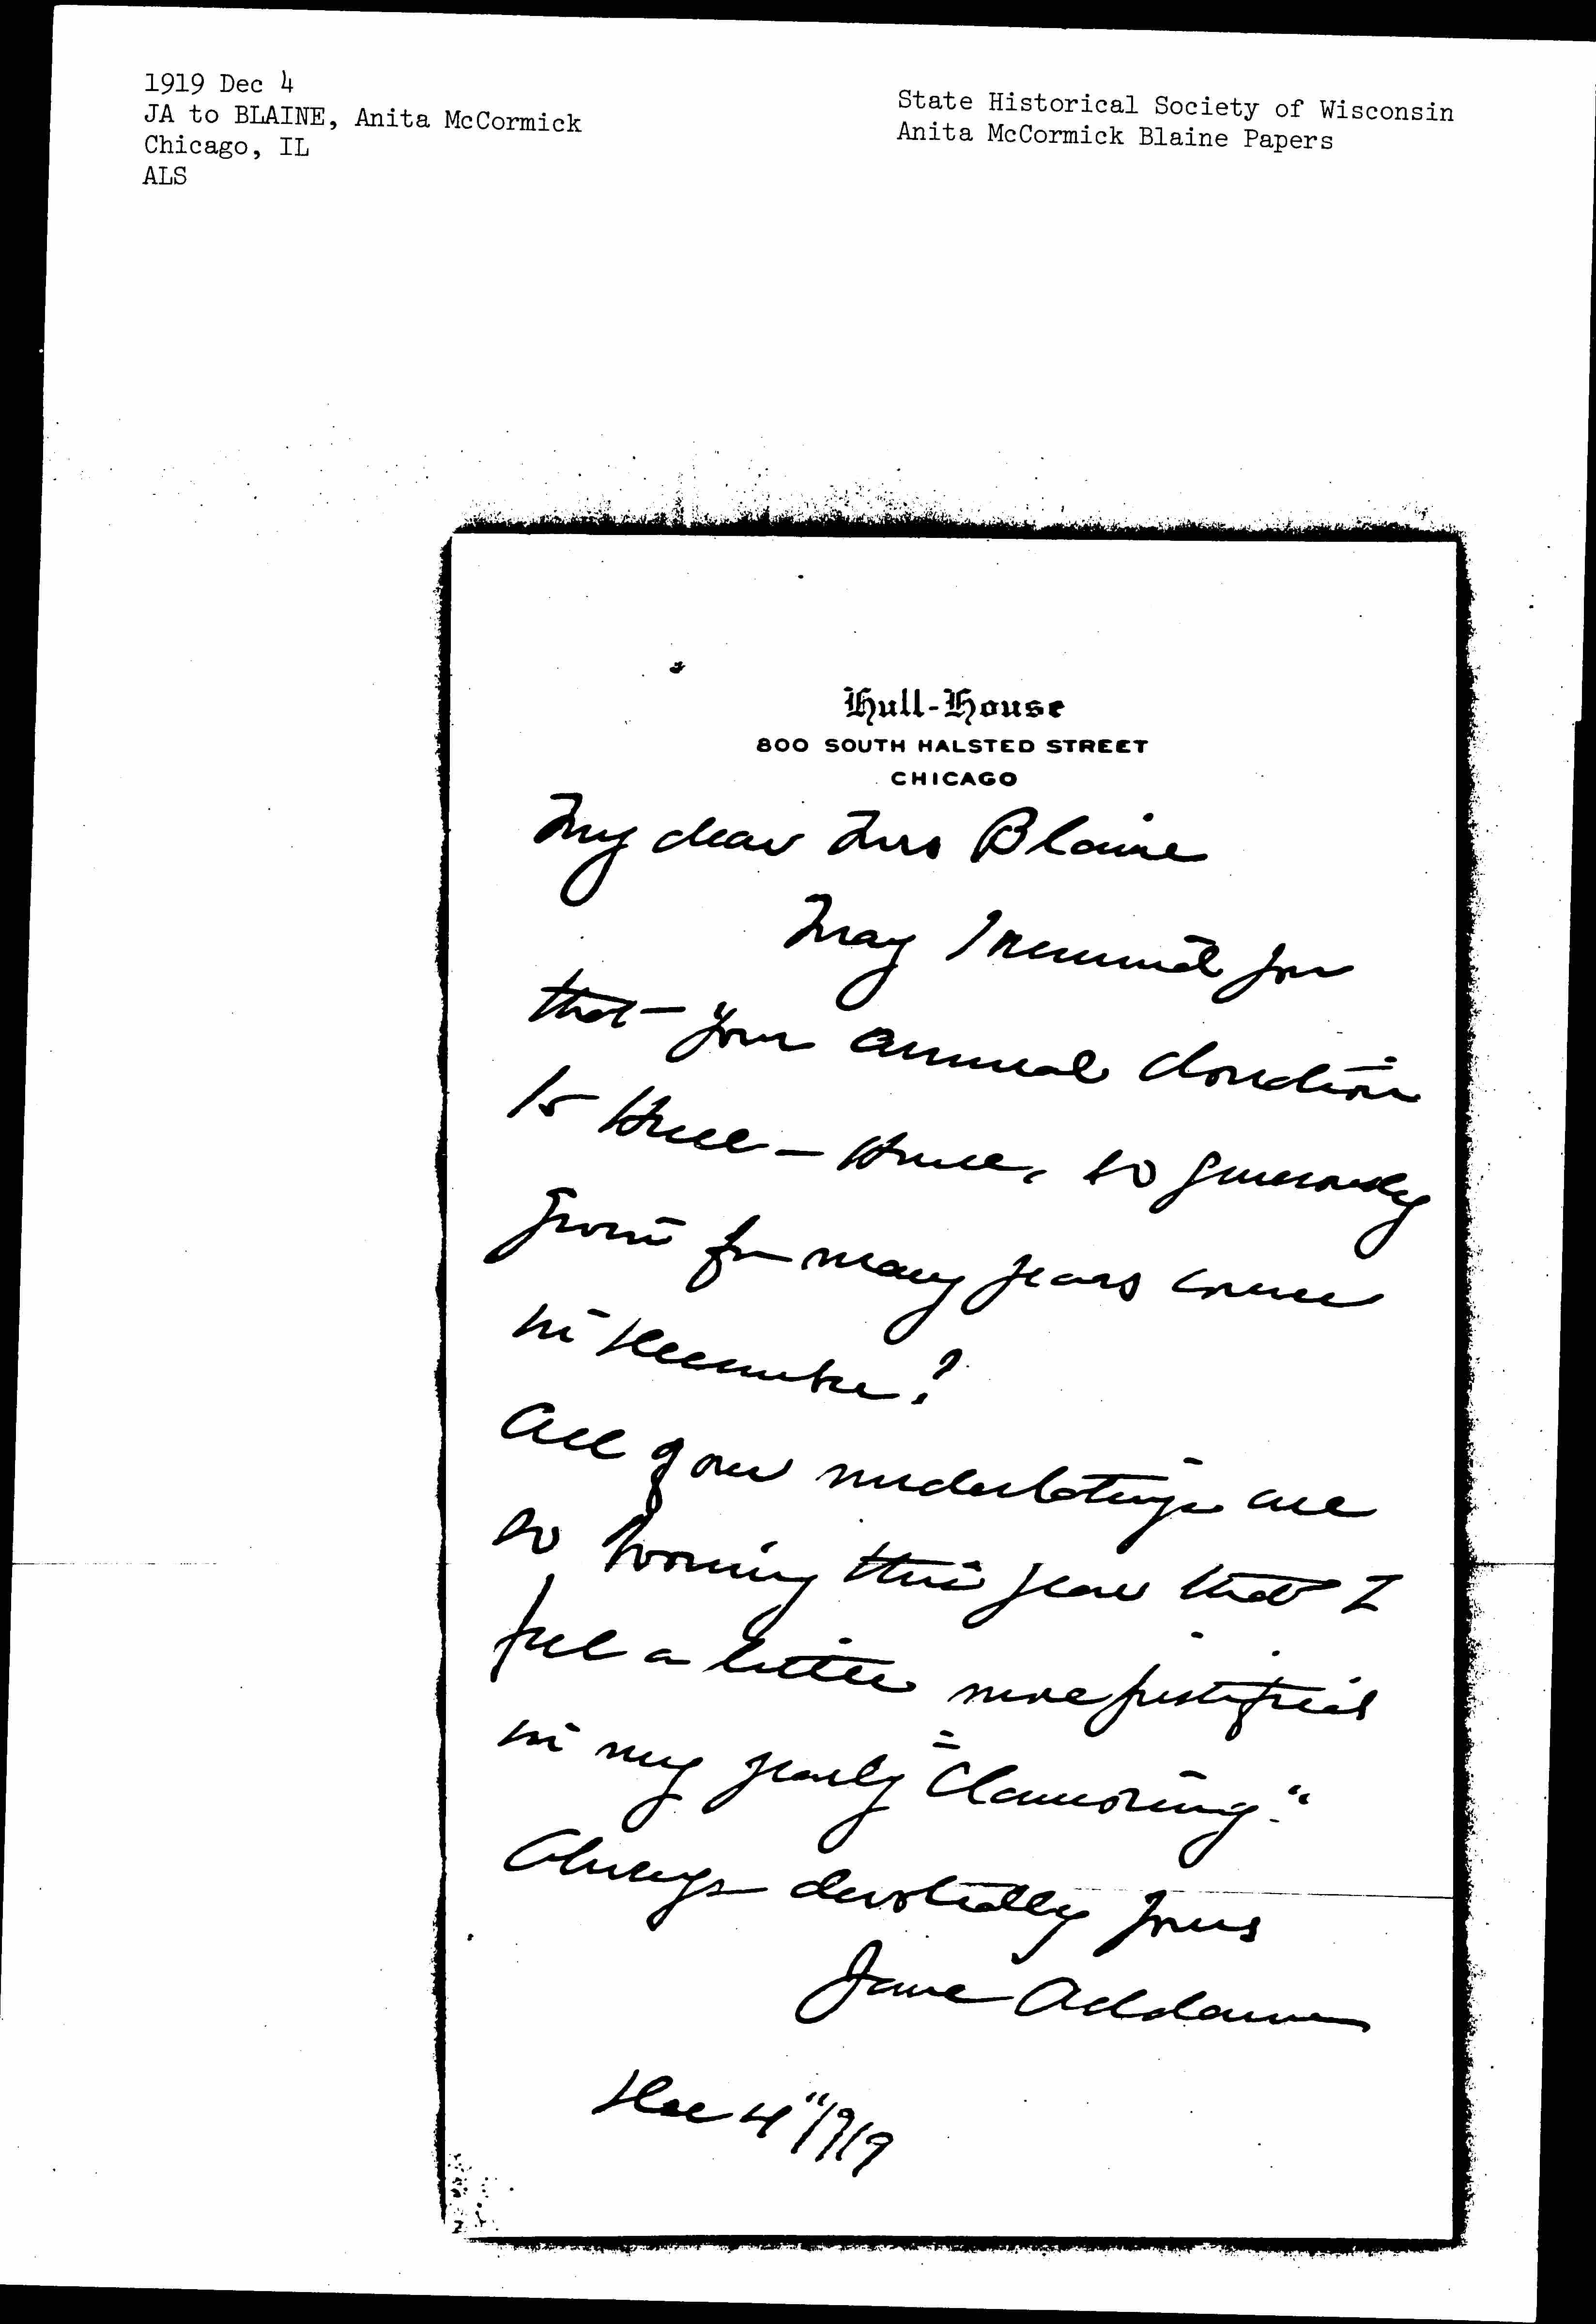 1919 Dec 4
JA to BLAINE, Anita McCormick
Chicago, IL
ALS
State Historical Society of Wisconsin
Anita McCormick Blaine Papers
Hull-House
800 SOUTH HALSTED STREET
CHICAGO
My dear Mrs Blaine
May I remind you
that your annual donation
to Hull-House, so generously
given for many years comes
in December?
All of our undertakings are
so booming this year that I
feel a little more justified
in my yearly "clamoring".
Always devotedly yours
Jane Addams
Dec 4" 1919